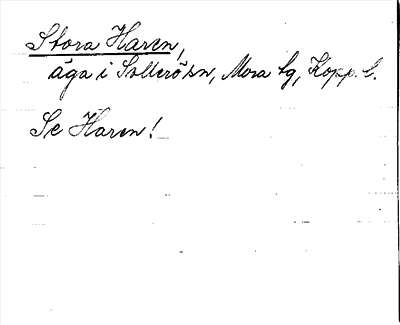 Stora Haren,
äga i Sollerösn, Mora tg, Kopp. l.
Se Haren!